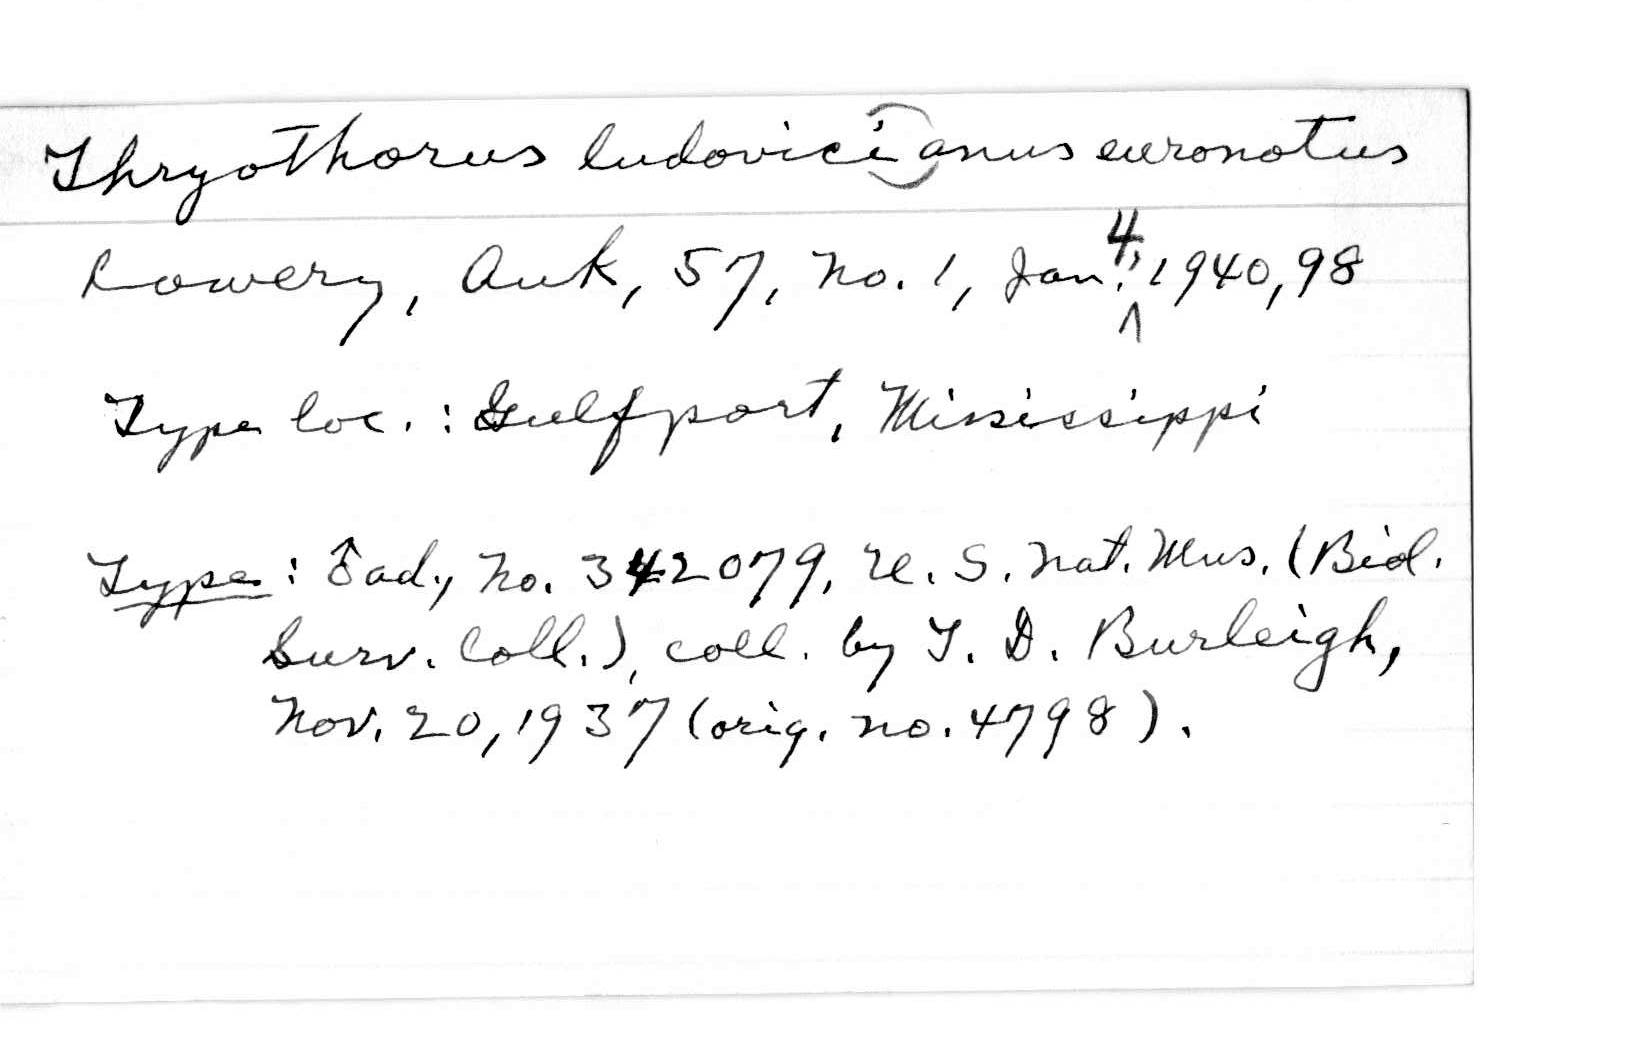 Thryothorus ludovicianus euronotus
Lowery, Auk, 57, No. 1, Jan. 4, 1940, 98
Type loc. : Gulfport, Mississippi
Type : ♂ ad., No. 342079, U. S. Nat. Mus. (Biol.
Surv. Coll.), coll. by T. D. Burleigh,
Nov. 20, 1937 (orig. no. 4798).